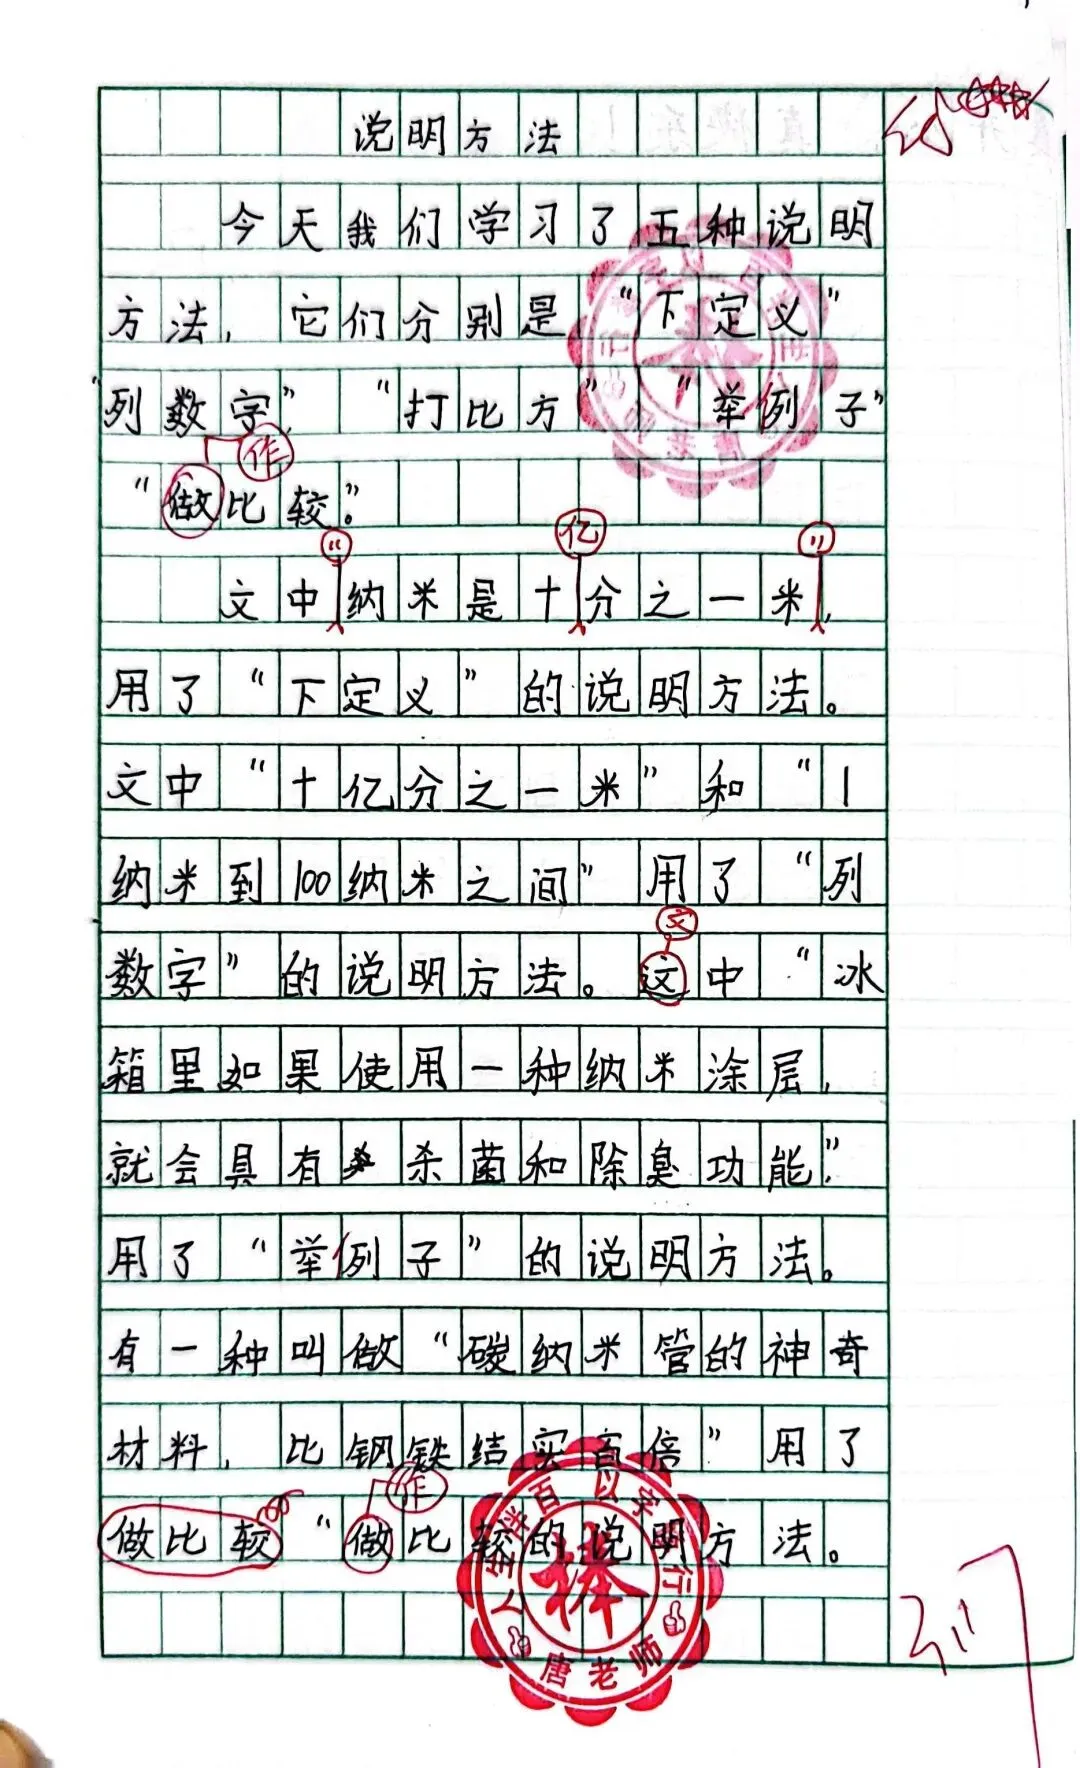 说明方法
今天我们学习了五种说明
方法，它们分别是“下定义”
“列数字”，“打比方”“举例子”
作
“做比较”。
“ 亿 ”
文中纳米是十分之一米，
用了“下定义”的说明方法。
文中“十亿分之一米”和“1
纳米到100纳米之间”用了“列
文
数字”的说明方法。这中“冰
箱里如果使用一种纳米涂层，
就会具有杀菌和除臭功能”，
用了“举例子”的说明方法。
有一种叫做“碳纳米管的神奇
材料，比钢铁结实百倍”用了
作
做比较“做比较的说明方法。
棒
唐老师